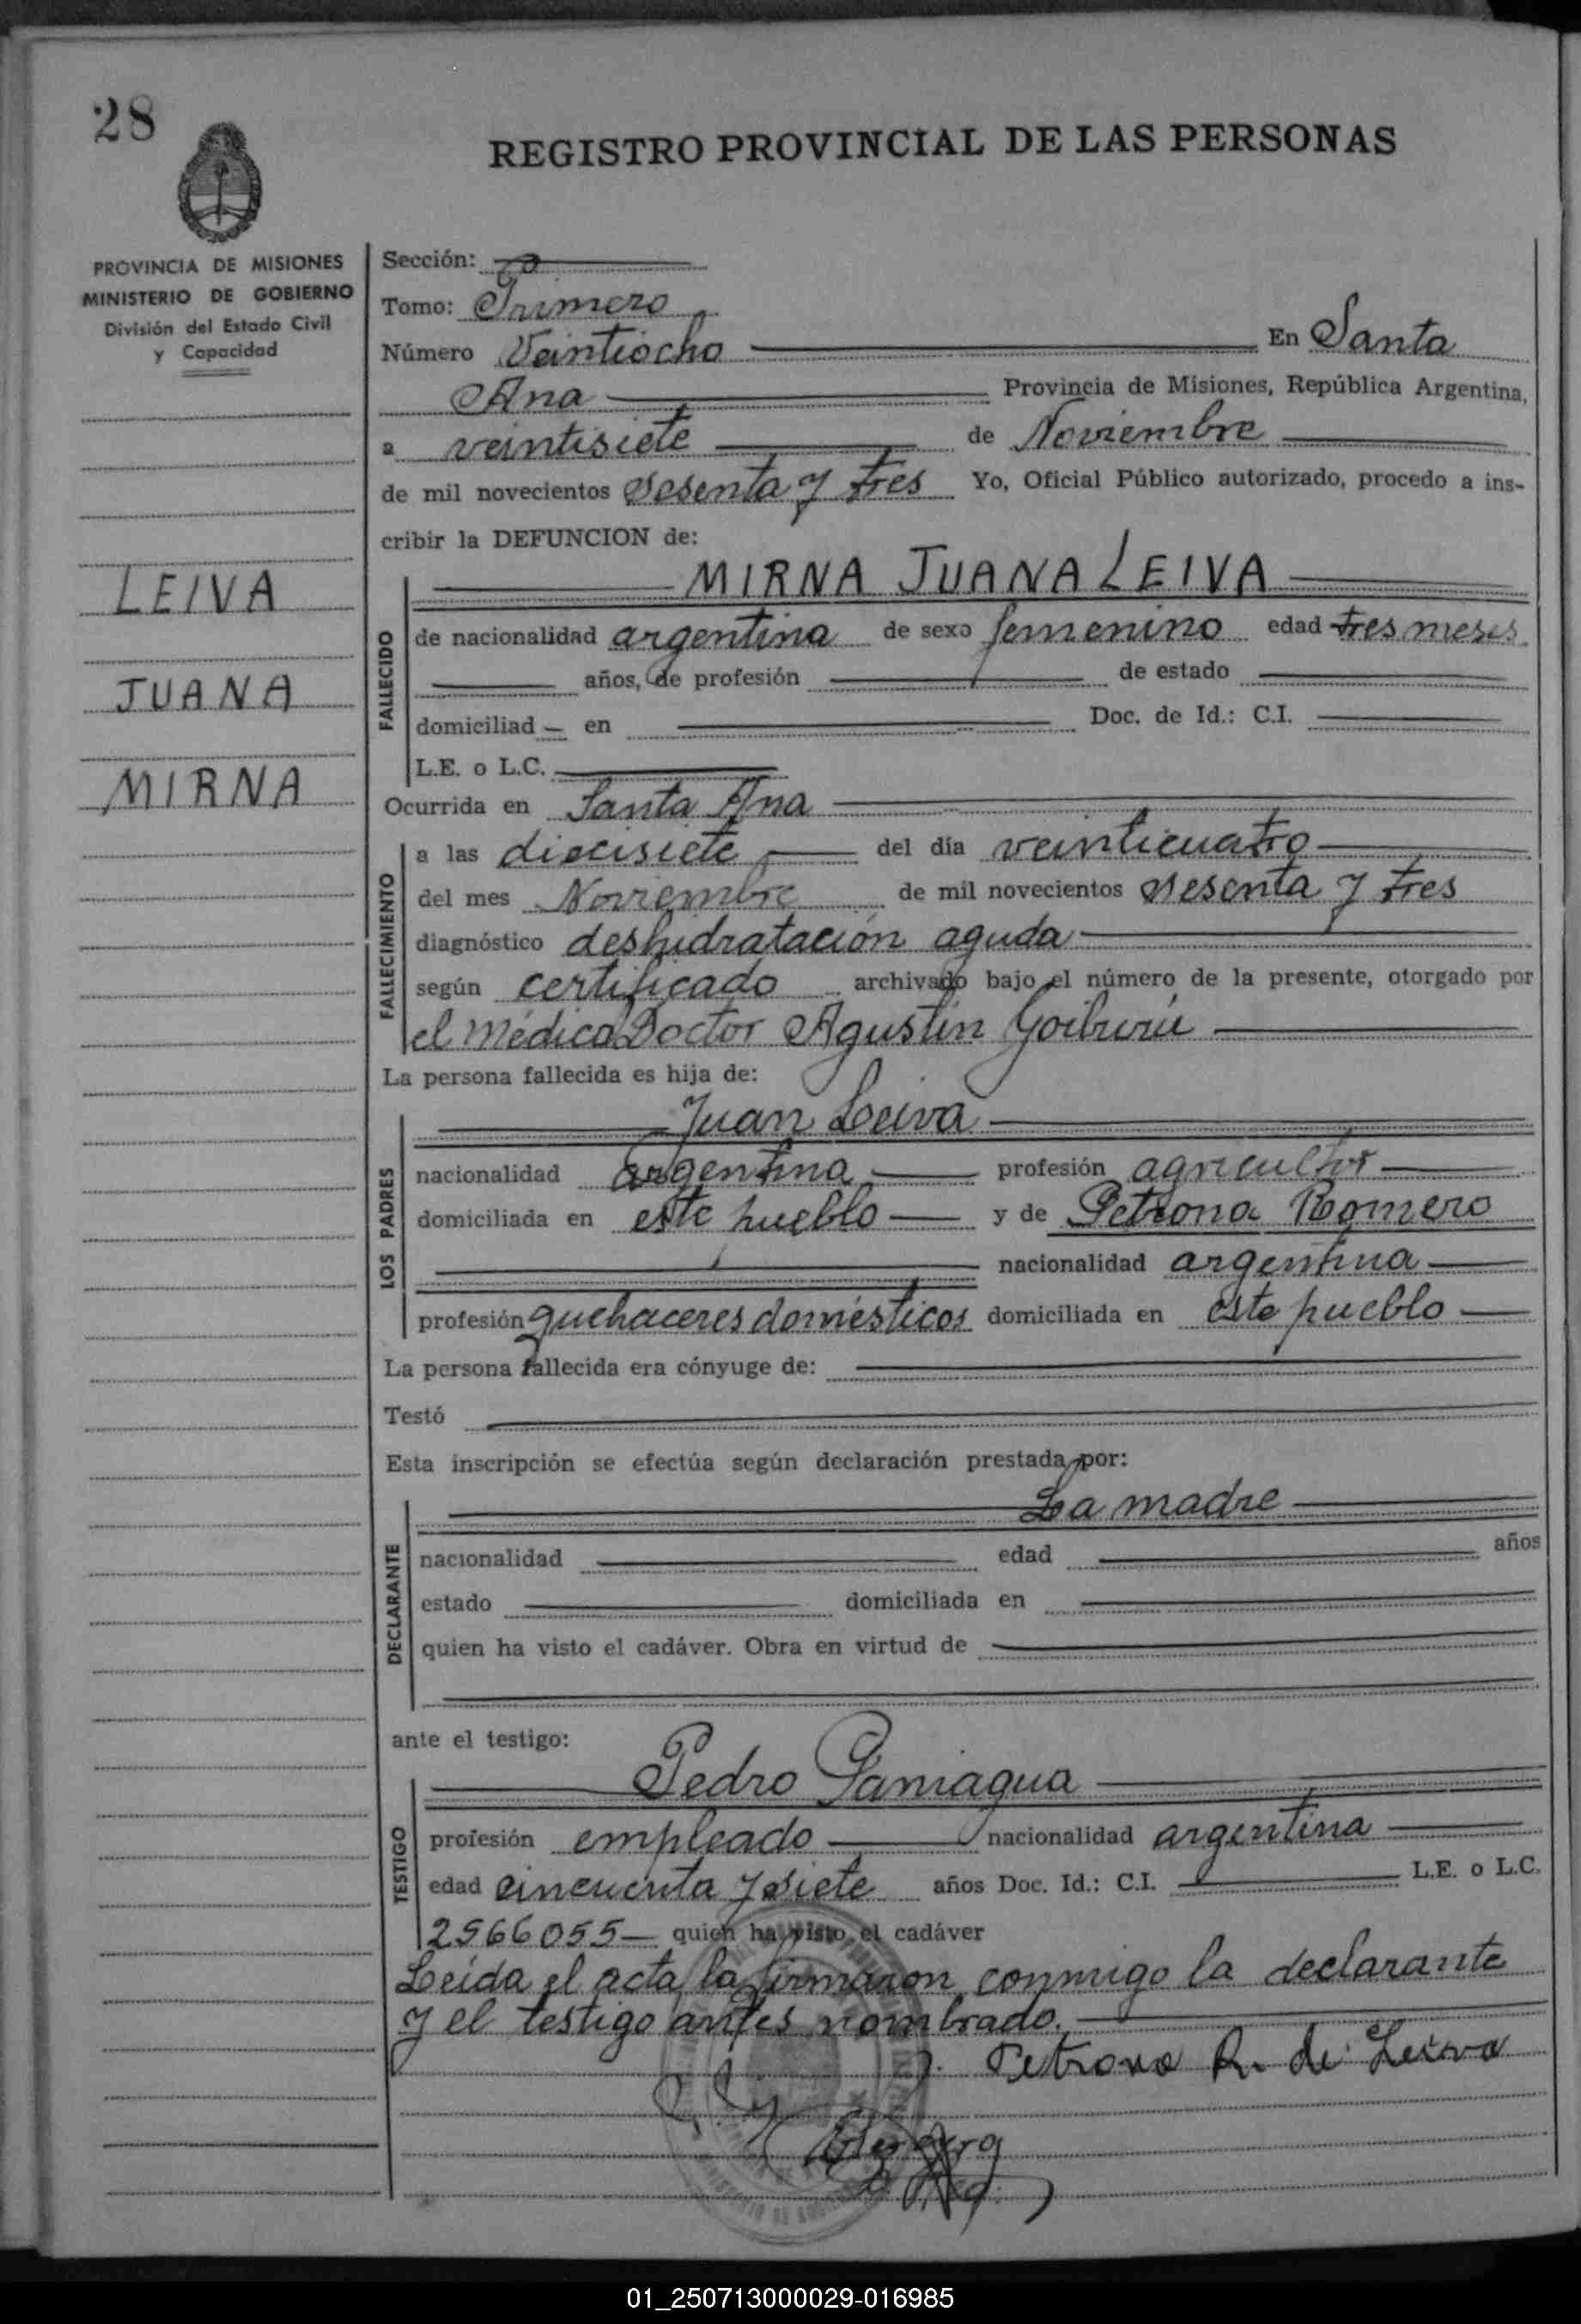 28
REGISTRO PROVINCIAL DE LAS PERSONAS
PROVINCIA DE MISIONES
MINISTERIO DE GOBIERNO
División del Estado Civil
y Capacidad
LEIVA
JUANA
MIRNA
Sección:
Tomo: Primero
Número Veintiocho En Santa
Ana Provincia de Misiones, República Argentina,
a veintisiete de Noviembre
de mil novecientos sesenta y tres Yo, Oficial Público autorizado, procedo a ins-
cribir la DEFUNCION de:
MIRNA JUANA LEIVA
FALLECIDO
de nacionalidad argentina de sexo femenino edad tres meses
años, de profesión de estado
domiciliad en Doc. de Id.: C.I.
L.E. o L.C.
Ocurrida en Santa Ana
FALLECIMIENTO
a las diecisiete del día veinticuatro
del mes Noviembre de mil novecientos sesenta y tres
diagnóstico deshidratación aguda
según certificado archivado bajo el número de la presente, otorgado por
el Médico Doctor Agustín Goiburú
La persona fallecida es hija de:
Juan Leiva
LOS PADRES
nacionalidad argentina profesión agricultor
domiciliada en este pueblo y de Petrona Romero
nacionalidad argentina
profesión quehaceres domésticos domiciliada en este pueblo
La persona fallecida era cónyuge de:
Testó
Esta inscripción se efectúa según declaración prestada por:
La madre
DECLARANTE
nacionalidad edad años
estado domiciliada en
quien ha visto el cadáver. Obra en virtud de
ante el testigo:
Pedro Paniagua
TESTIGO
profesión empleado nacionalidad argentina
edad cincuenta y siete años Doc. Id.: C.I. L.E. o L.C.
2566055 quien ha visto el cadáver
Leída el acta la firmaron conmigo la declarante
y el testigo antes nombrado.
Petrona R. de Leiva
01_250713000029-016985